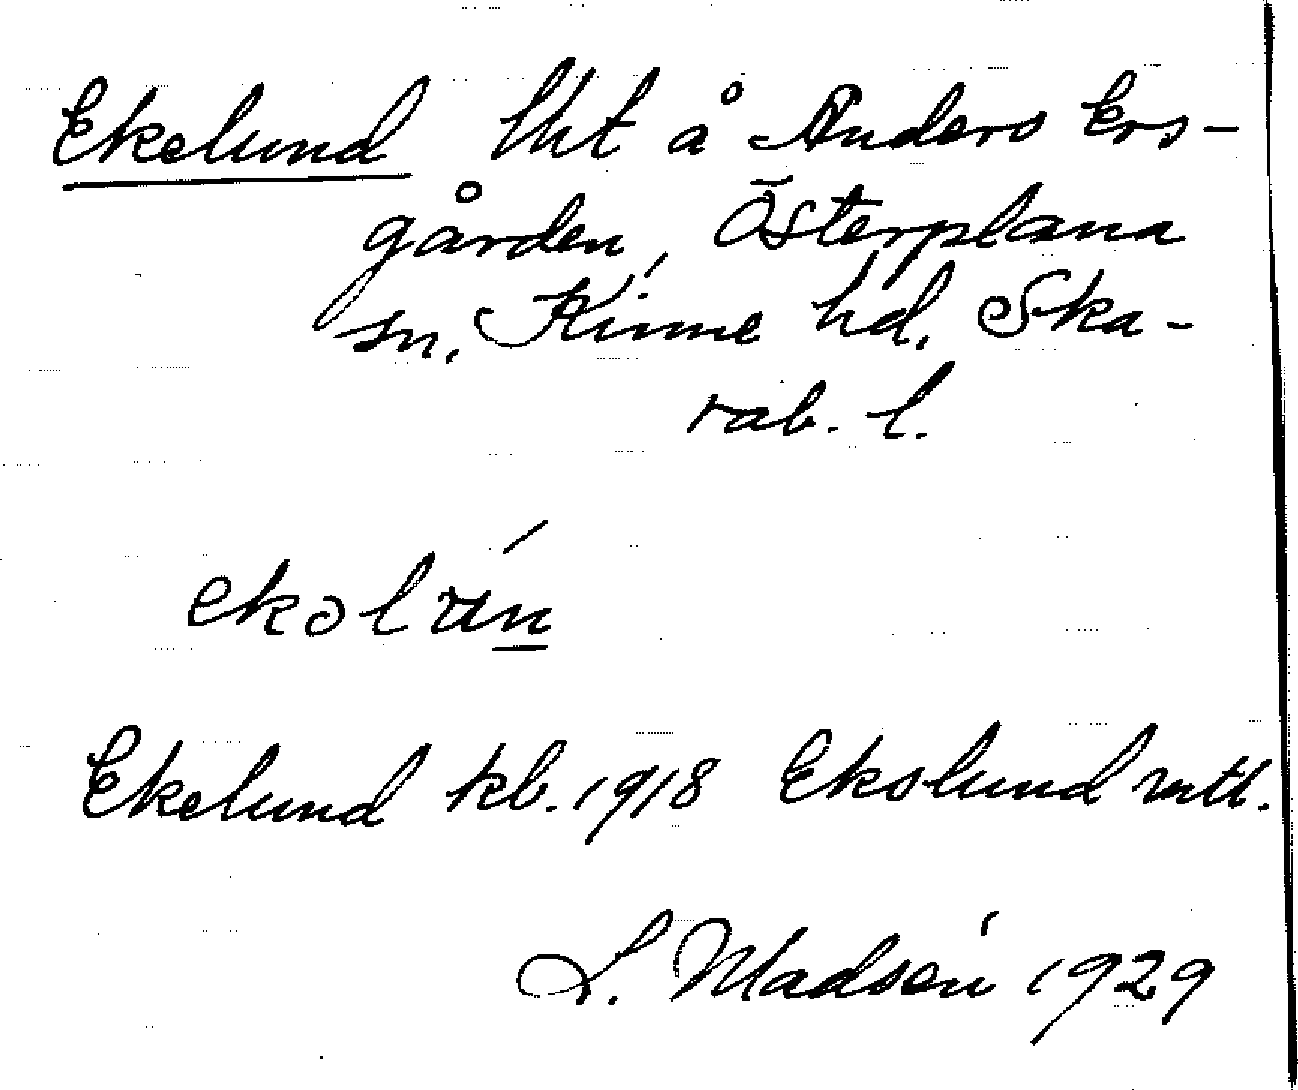 Ekelund lht å Anders Ers-
gården, Österplana
sn, Kinne hd. Ska-
rab. l.
Ekelund kb. 1918 Ekolund
L. Madsén 1929